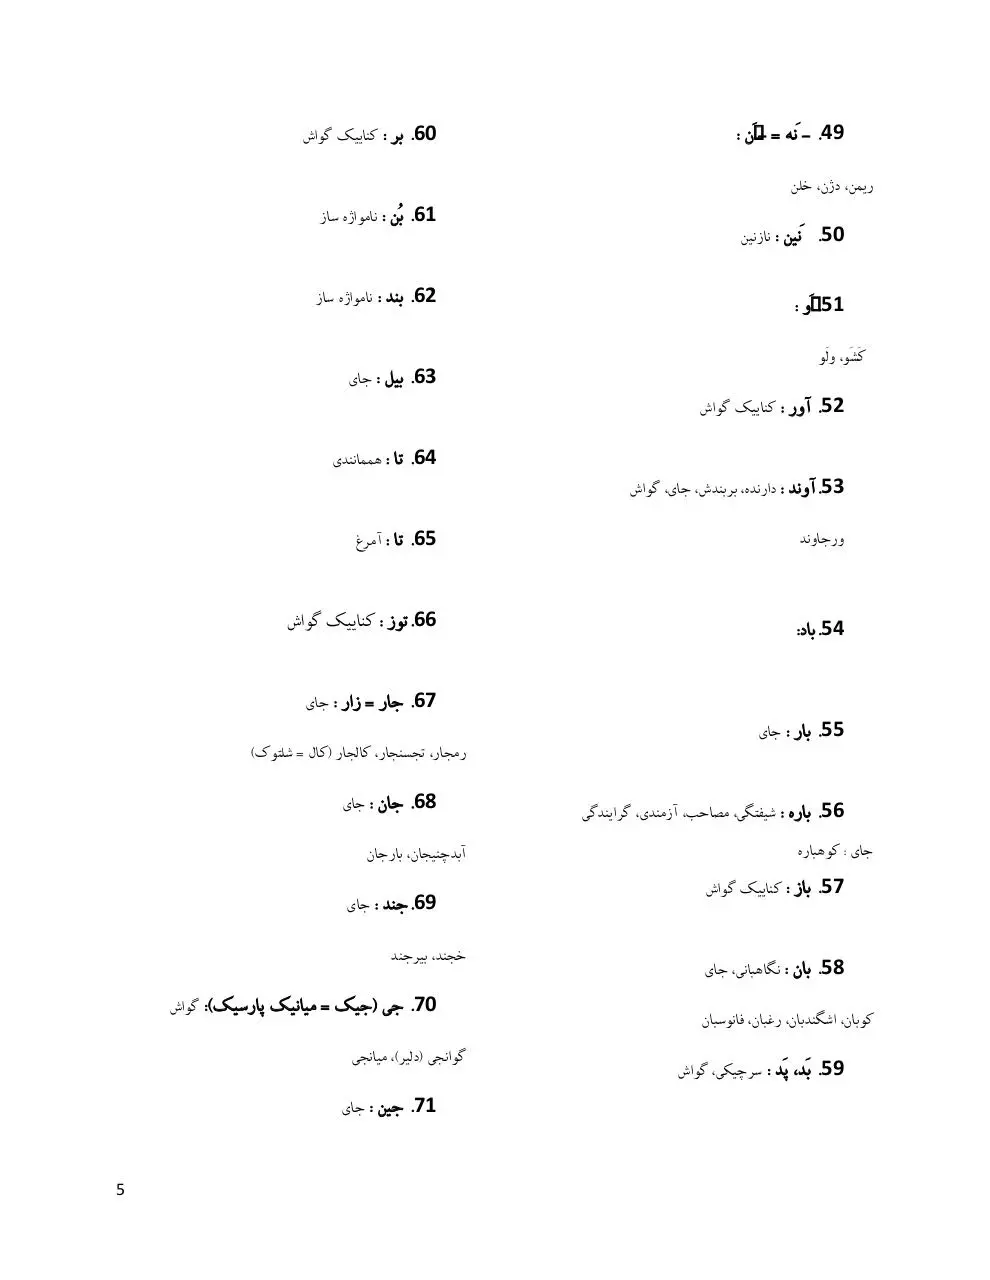 49. – َنه = –َن :
ریمن، دژن، خلن
50. َنین : نازنین
51. َو :
کَشَو، ولَو
52. آور : کناییک گواش
53. آوند : دارنده، بربندش، جای، گواش
ورجاوند
54. باد:
55. بار : جای
56. باره : شیفتگی، مصاحب، آزمندی، گرایندگی
جای : کوهباره
57. باز : کناییک گواش
58. بان : نگاهبانی، جای
کوبان، اشگندبان، رغبان، فانوسبان
59. بَد، پَد : سرچیکی، گواش
60. بر : کناییک گواش
61. بُن : نامواژه ساز
62. بند : نامواژه ساز
63. بیل : جای
64. تا : هممانندی
65. تا : آمرغ
66. توز : کناییک گواش
67. جار = زار : جای
رمجار، تجسنجار، کالجار (کال = شلتوک)
68. جان : جای
آبدچنیجان، بارجان
69. جند : جای
خجند، بیرجند
70. جی (جیک = میانیک پارسیک): گواش
گوانجی (دلیر)، میانجی
71. جین : جای
5